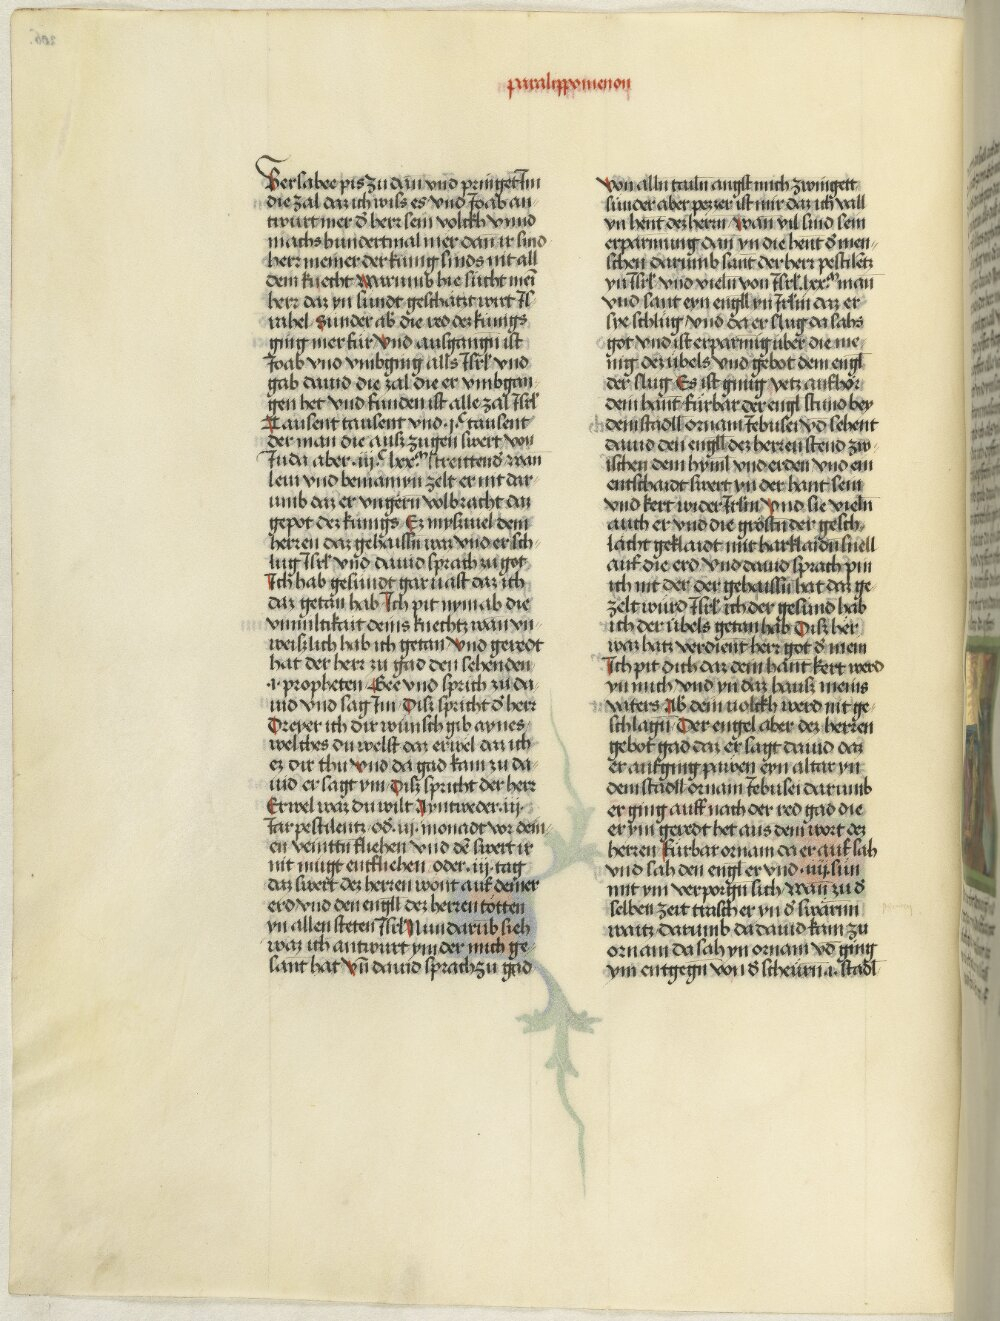 paralippomenon
Bersabee pis zu dan vnd pringet Im
die zal daz ich wils es vnd Joab an-
twurt mer d̄ herr sein volckh vnnd
machs hundertmal mer dan ir sind
herr meiner der kunig sinds nit all
dem knecht Warumb hie sucht mein
herr daz yn sundt geschatzt wirt Is-
rahel Sunder ab die red dez kunigs
ging mer für Vnd ausgangn ist
Joab vnd vmbging alls Isrl vnd
gab dauid die zal die er vmbgan-
gen het vnd funden ist alle zal Isrl
Tausent tausent vnd .j.c tausent
der man die ausz zugen swert von
Juda aber .iij.c lxx.m streittend wan
leui vnd beniamyn zelt er nit dar-
umb daz er vngern volbracht daz
gepot dez kunigs Ez mysuiel dem
herren daz gehaissn waz vnd er sch-
lug Isrl vnd dauid sprach zu got
Ich hab gesundt gar uast daz ich
daz getan hab Ich pit nym ab die
vnmiltikait deins knechtz wan vn-
weiszlich hab ich getan Vnd geredt
hat der herr zu gad den sehenden
.i. propheten Gee vnd sprich zu da-
uid vnd sag Im Disz spricht d̄ herr
Dreyer ich dir wunsch gib aynes
welches du welst daz erwel daz ich
ez dir thu Vnd da gad kam zu da-
uid er sagt ym Disz spricht der herr
Erwel waz du wilt Ayntweder .iij.
Jar pestilentz od̄ .iij. monadt vor dein-
en veintn fliehen vnd dē swert ir
nit mugt entfliehen oder .iij. tag
daz swert dez herren wont auf deiner
erd vnd den engll dez herren totten
yn allen steten Isrl Nun darūb sieh
waz ich antwurt ym der mich ge-
sant hat Vn̄ dauid sprach zu gad
Von alln tailn angst mich zwingett
sünder aber pezzer ist mir daz ich vall
yn hent dez herrn Wan vil sind sein
erparmung dan yn die hent d̄ men-
schen darumb sant der herr pestilētz
yn Isrl vnd vieln von Isrl lxx.m man
vnd sant eyn engll yn Irlm daz er
sye schlug vnd da er slug da sahs
got vnd ist erparmig über die me-
nig dez übels vnd gebot dem engl
der slug Es ist gnug yetz aufhor
dein hant furbar der engl stund bey
dem stadll ornam Jebusei vd̄ sehent
dauid den engll dez herren stend zw-
ischen dem hyml vnd erden vnd ein
entschaidt swert yn der hant sein
vnd kert wider Irlm Vnd sie vieln
auch er vnd die gröstn der gesch-
lacht geklaidt mit harklaidn snell
auf die erd vnd dauid sprach pin
ich nit der der gehaissn hat daz ge-
zelt wurd Isrl ich der gesund hab
ich der übels getan hab Disz her
waz hatz verdient herr got d̄ mein
Ich pit dich daz dein hant kert werd
yn mich vnd yn daz hausz meins
vaters Ab dem uolckh werd nit ge-
schlagn Der engel aber dez herren
gebot gad daz er sagt dauid daz
er aufging pawen eyn altar yn
dem stadll ornam Jebusei darumb
er ging auff nach der red gad die
er ym geredt het aus dem wort dez
herren Furbar ornam da er auf sah
vnd sah den engl er vnd .iiij. sün
mit ym verporgn sich Wan zu d̄
selben zeit trasch er yn d̄ swarm
waitz darumb da dauid kam zu
ornam da sah yn ornam vd̄ ging
ym entgegn von d̄ scheurn .i. stadl